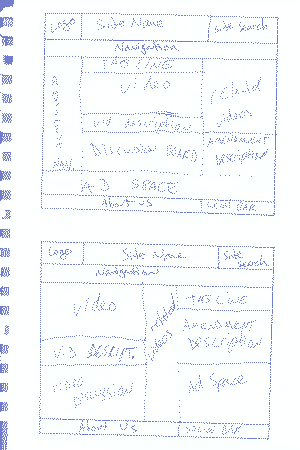 Logo Site Name Site Search
Navigation
TAG LINE
Video
related
videos
VID description
Discussion BOARD
AMENDMENT
DESCRIPTION
NAV
AD SPACE
About US SOCIAL BAR
Logo Site Name Site
Search
Navigation
Video
related
videos
TAG LINE
AMENDMENT
DESCRIPTION
VID DESCRIPT.
VIDEO
DISCUSSION
Ad Space
About Us SOCIAL BAR